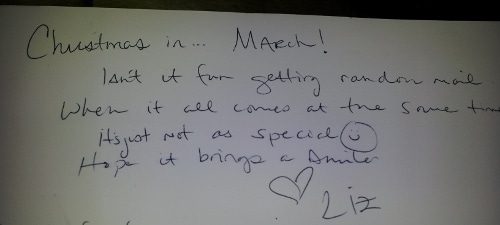 Christmas in... MArch!
Isn't it fun getting random mail
When it all comes at the same time
It's just not as special
Hope it brings a smile
Liz